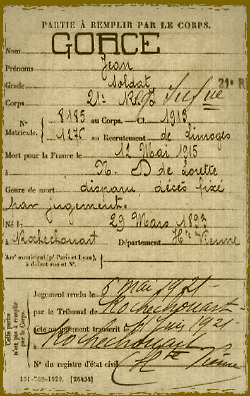 PARTIE À REMPLIR PAR LE CORPS.
Nom GORCE
Prénoms Jean
Grade soldat
Corps 21e Regt Infrie 21e R
N° 8185 au Corps. — Cl. 1913
Matricule. 1176 au Recrutement de Limoges
Mort pour la France le 12 Mai 1915
à N. D de Lorette
Genre de mort disparu décès fixé
par jugement.
Né le 29 Mars
à Rochechouart Département Hte Vienne
Arrt municipal (pr Paris et Lyon),
à défaut rue et N°
Cette partie
n'est pas à remplir
par le Corps.
Jugement rendu le 8 mai 1921
par le Tribunal de Rochechouart
acte ou jugement transcrit le Juin 1921
à Rochechouart
Hte Vienne
N° du registre d'état civil
101-708-1922. [26434]